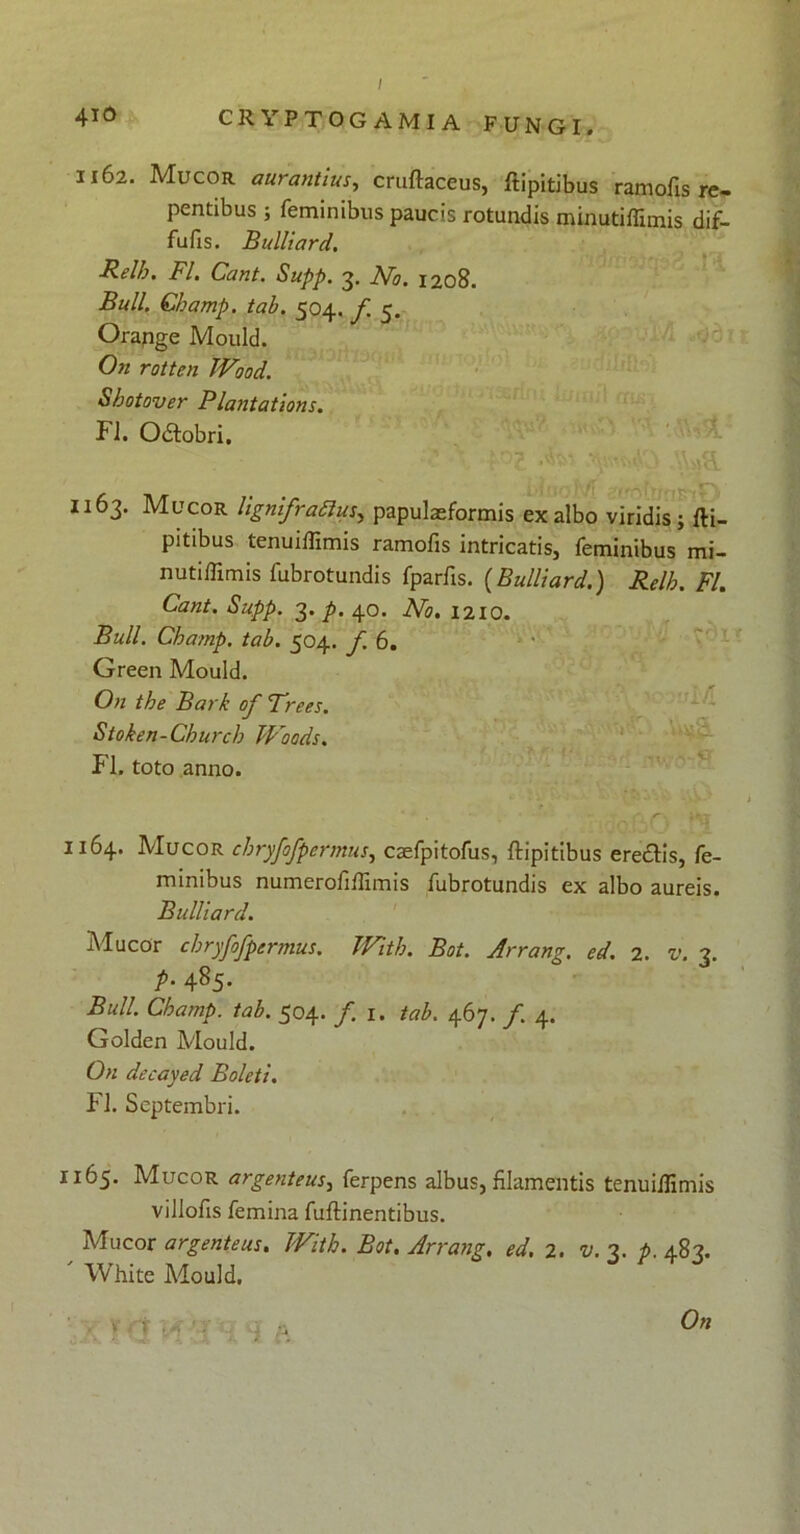 410 CRYPTOGAMIA FUNGI.
1162. Mucor aurantius, cruſtaceus, ſtipitibus ramoſis re-
pentibus ; ſeminibus paucis rotundis minutiſſimis dif-
fuſis. Bulliard.
Relh. Fl. Cant. Supp. 3. No. 1208.
Bull. Champ. tab. 504. f. 5.
Orange Mould.
On rotten Wood.
Shotover Plantations.
Fl. Octobri.
1163. Mucor lignifractus, papulæformis ex albo viridis ; ſti-
pitibus tenuiſſimis ramoſis intricatis, ſeminibus mi-
nutiſſimis ſubrotundis ſparſis. (Bulliard.) Relh. Fl.
Cant. Supp. 3. p. 40. No. 1210.
Bull. Champ. tab. 504. f. 6.
Green Mould.
On the Bark of Trees.
Stoken-Church Woods.
Fl. toto anno.
1164. Mucor chryſoſpermus, cæſpitoſus, ſtipitibus erectis, ſe-
minibus numeroſiſſimis ſubrotundis ex albo aureis.
Bulliard.
Mucor chryſoſpermus. With. Bot. Arrang. ed. 2. v. 3.
p. 485.
Bull. Champ. tab. 504. f. 1. tab. 467. f. 4.
Golden Mould.
On decayed Boleti.
Fl. Septembri.
1165. Mucor argenteus, ſerpens albus, filamentis tenuiſſimis
villoſis ſemina ſuſtinentibus.
Mucor argenteus. With. Bot. Arrang. ed. 2. v. 3. p. 483.
White Mould.
On